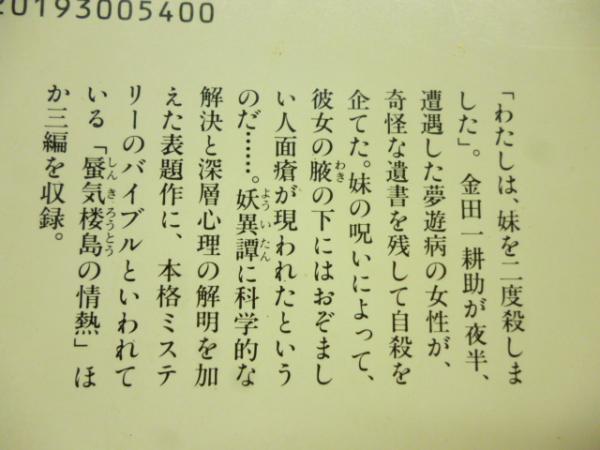 20193005400
「わたしは、妹を二度殺しま
した」。金田一耕助が夜半、
遭遇した夢遊病の女性が、
奇怪な遺書を残して自殺を
企てた。妹の呪いによって、
彼女の腋の下にはおぞまし
い人面瘡が現われたという
のだ……。妖異譚に科学的な
解決と深層心理の解明を加
えた表題作に、本格ミステ
リーのバイブルといわれて
いる「蜃気楼島の情熱」ほ
か三編を収録。